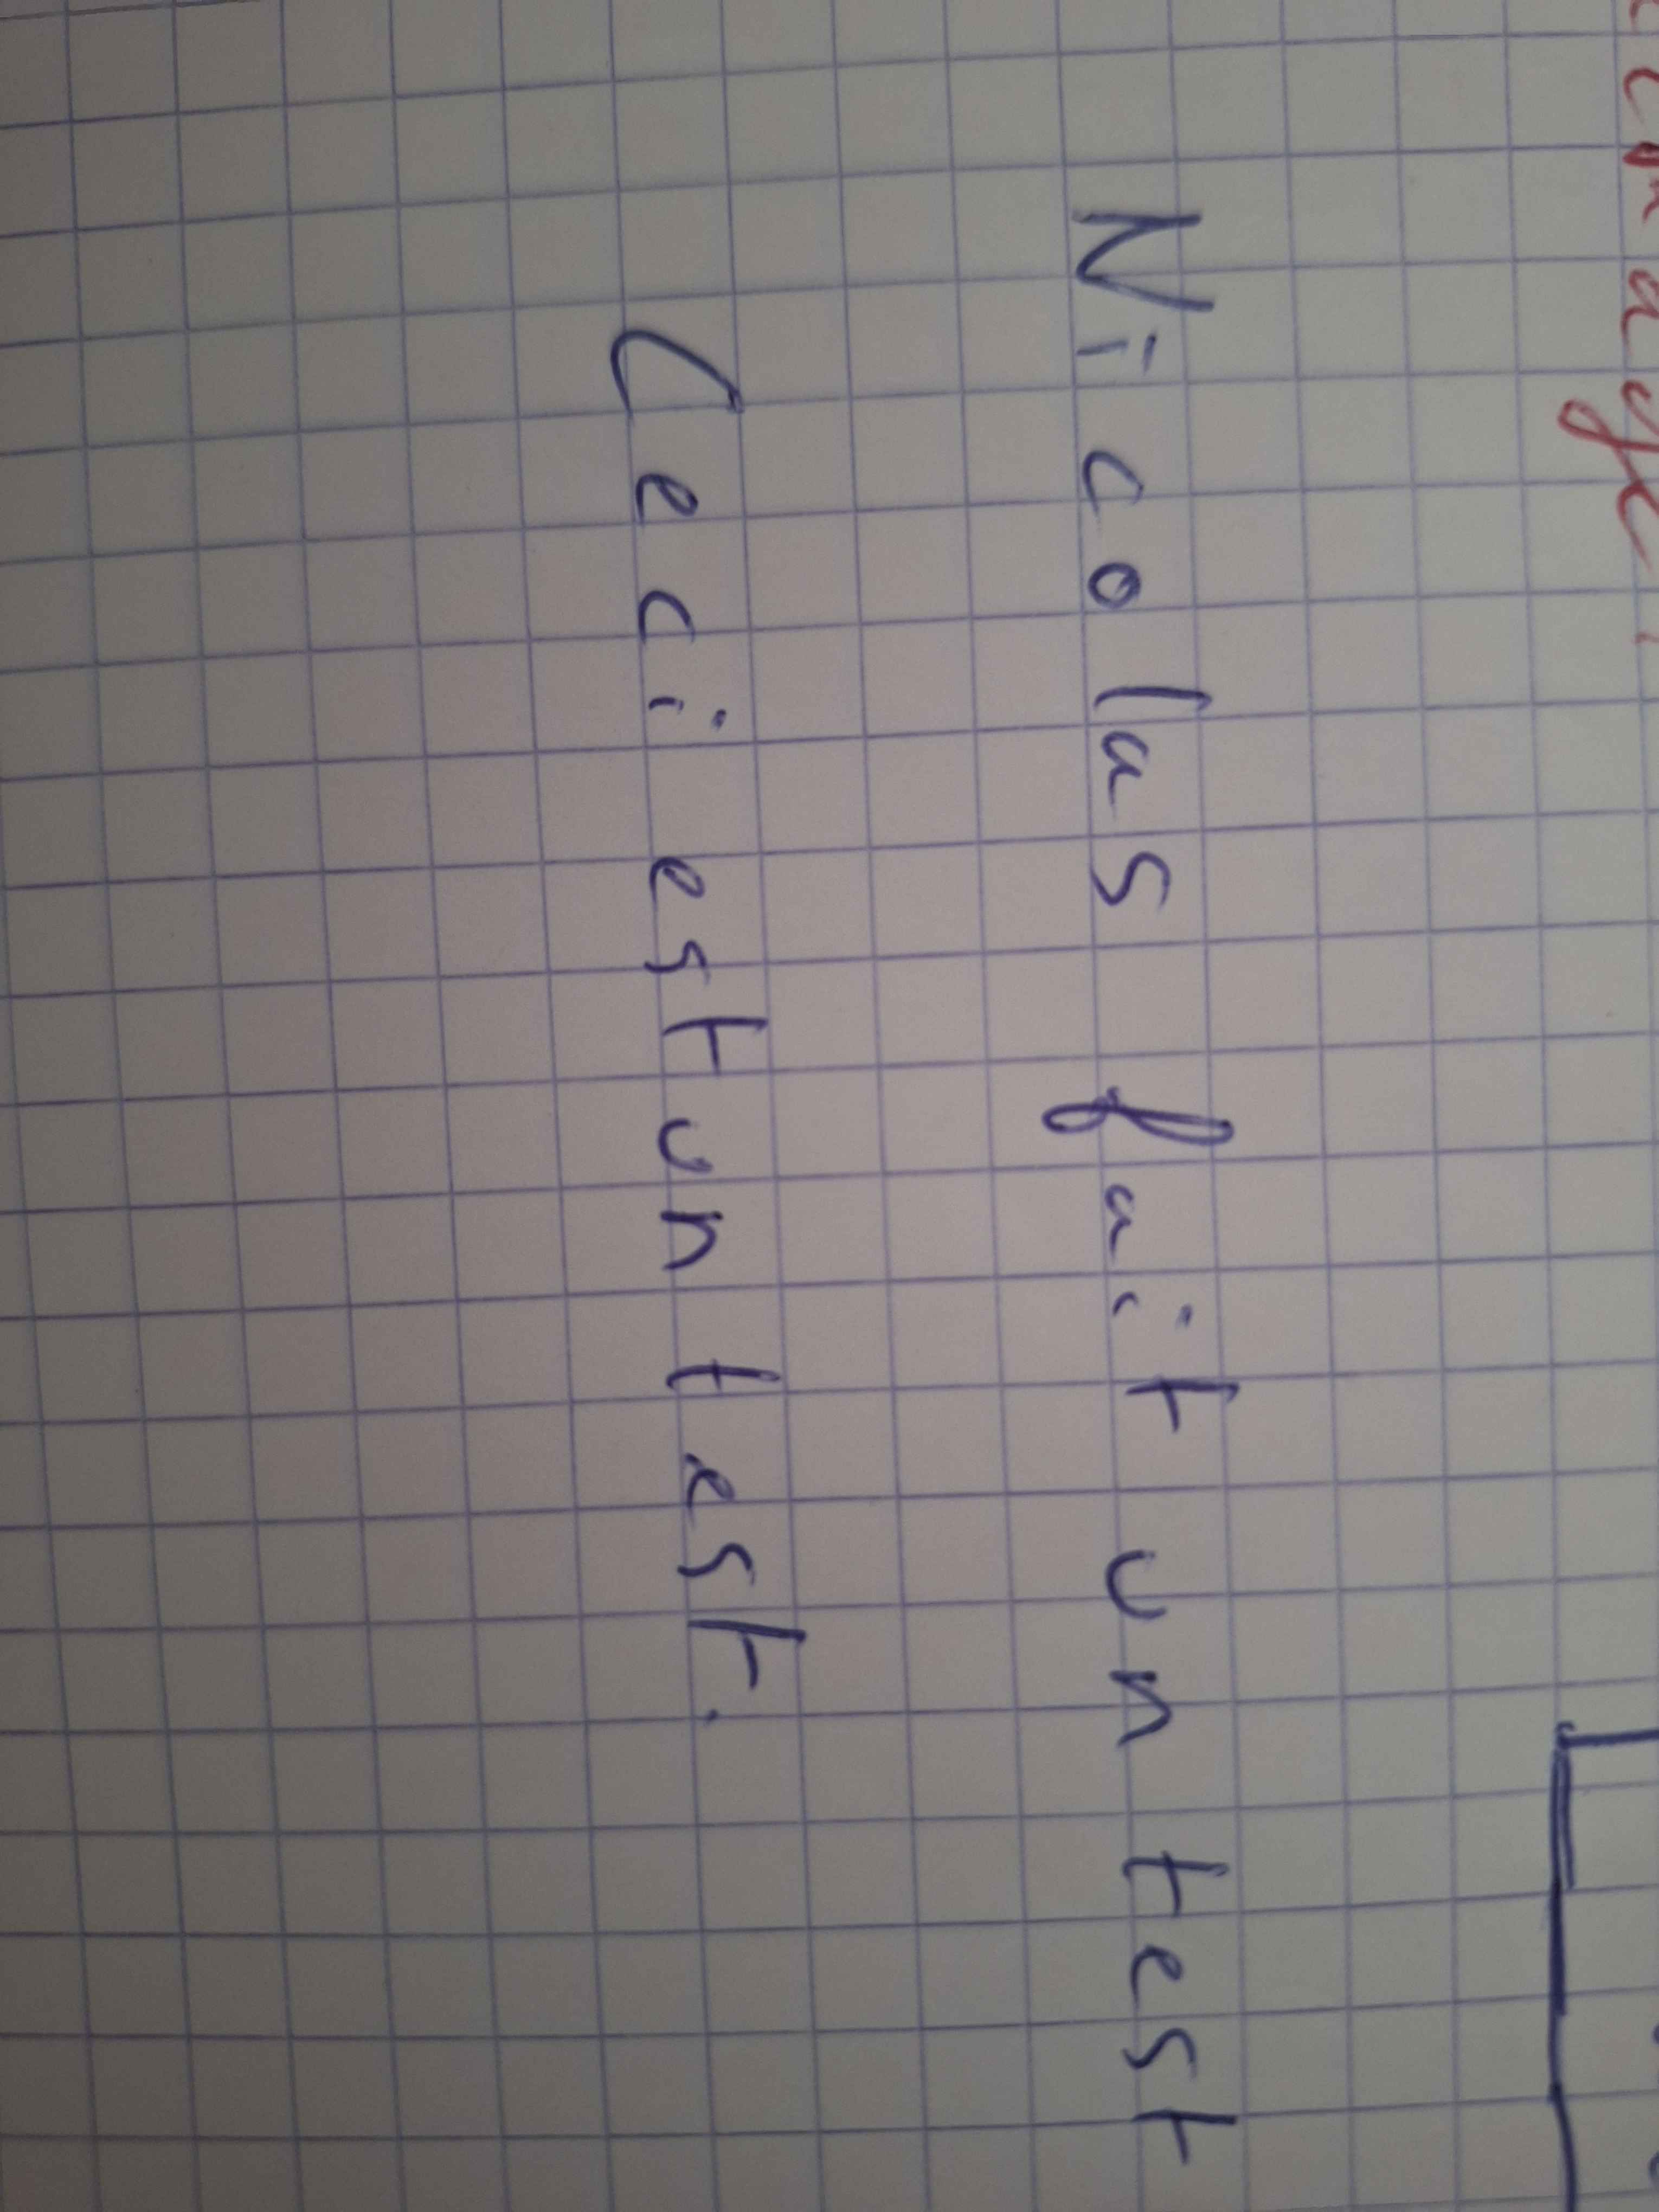 Nicolas fait un test
Ceci est un test.